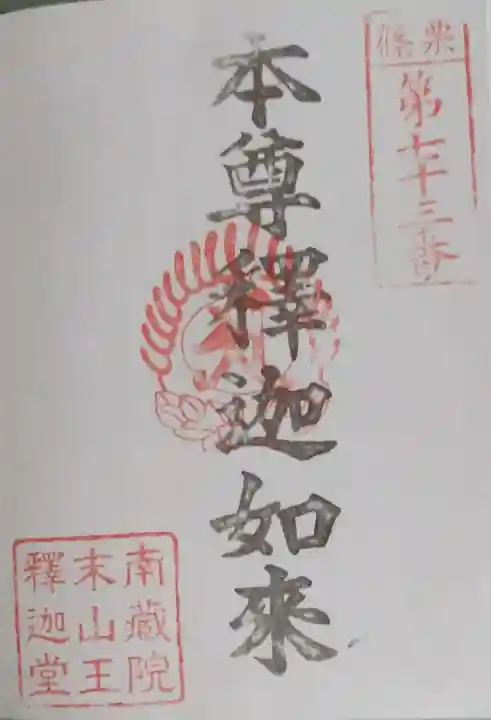 篠栗
第七十三番
本尊釋迦如來
南藏院
末山王
釋迦堂